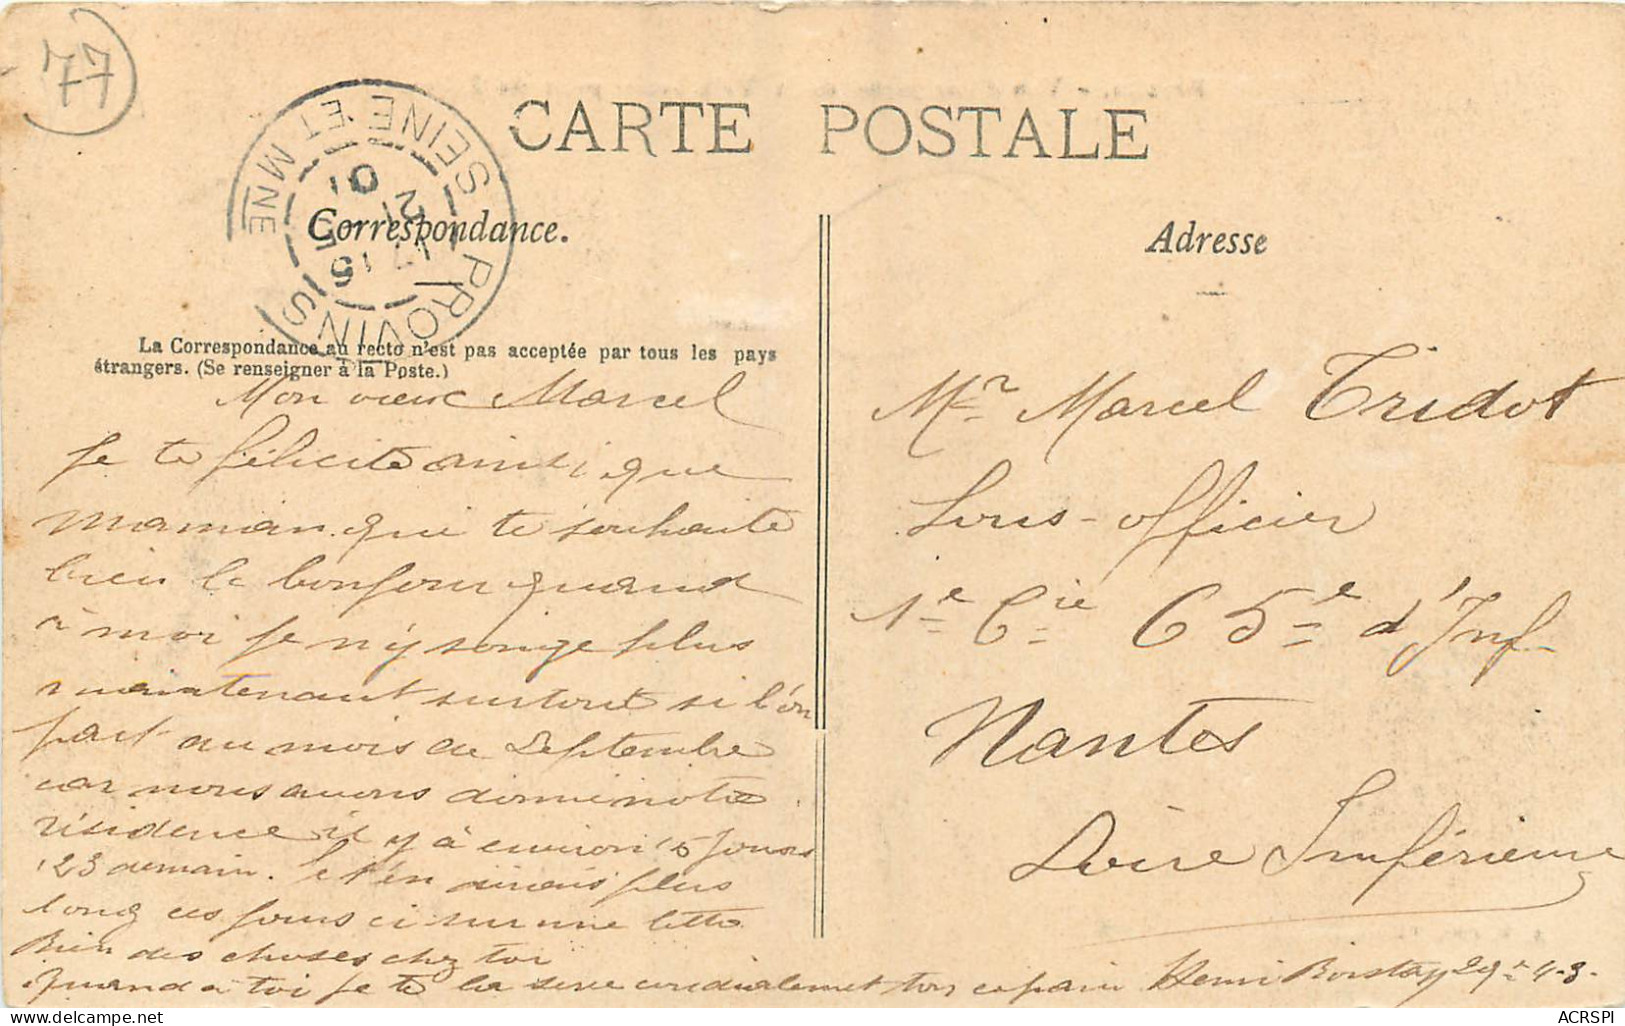 77
CARTE POSTALE
SEINE ET MNE
PROVINS
Correspondance.
Adresse
La Correspondance au recto n'est pas acceptée par tous les pays
étrangers. (Se renseigner à la Poste.)
Mon vieux Marcel
Je te félicite ainsi que
maman qui te souhaite
bien le bonjour quand
à moi je n'y songe plus
maintenant surtout si l'on
part au mois de Septembre
car nous avons notre
résidence il y à environ 15 Jours
23 demain. Je t'en dirais plus
long ces jours ci sur une lettre
Bien des choses chez toi
Quand a toi je te la serre cordialement ton copain Henri
Mr Marcel Tridot
Sous-officier
1e Cie 65e d'Inf
Nantes
Loire Inférieure
ACRSPI